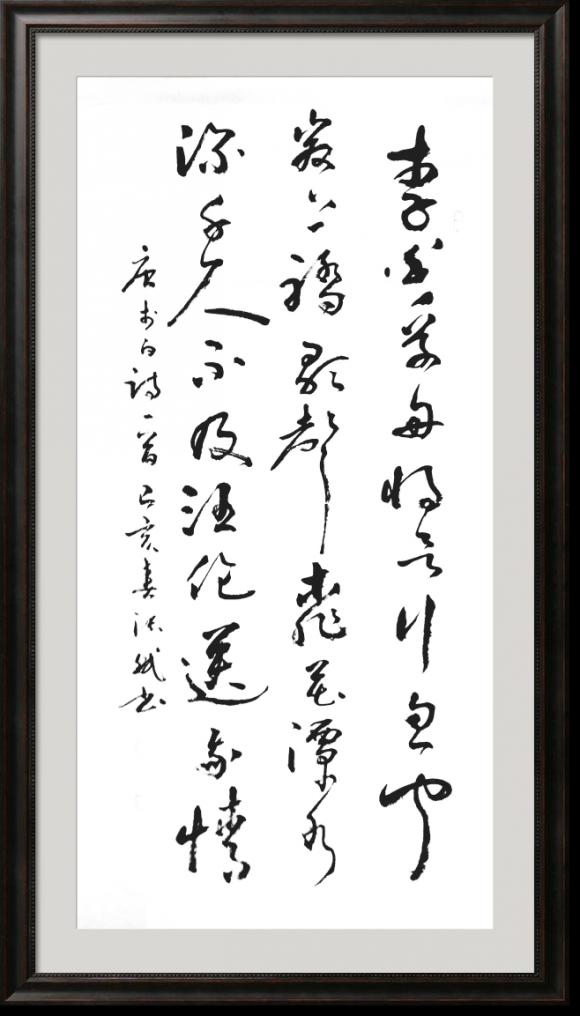 李白乘舟將欲行忽聞
岸上踏歌聲桃花潭水
深千尺不及汪倫送我情
唐李白詩一首己亥春斌書